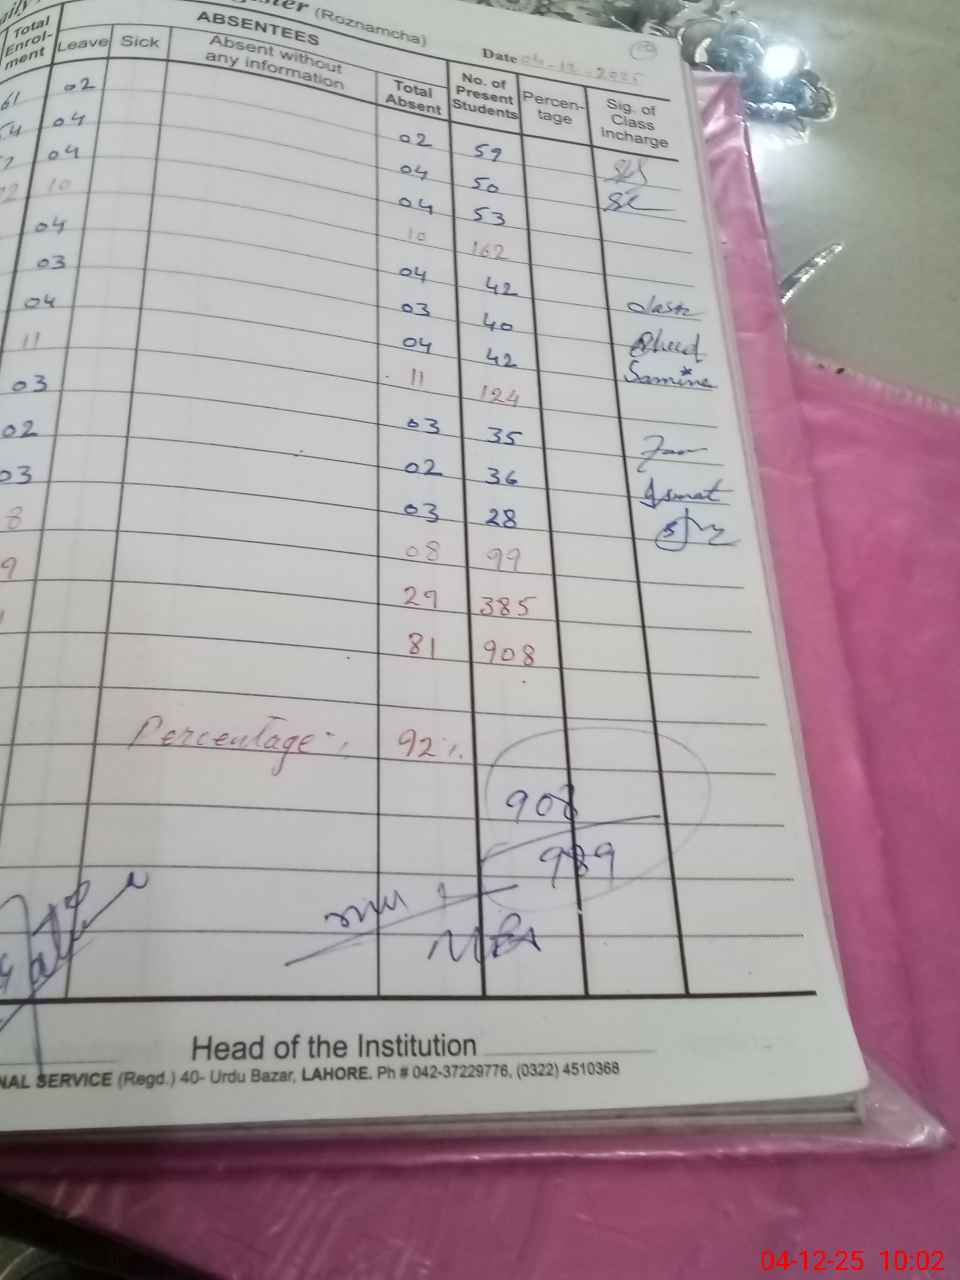 (Roznamcha)
Date 04-12-2025
Total Enrol-ment
ABSENTEES
Leave Sick Absent without any information Total Absent
No. of Present Students
Percen-tage
Sig. of Class Incharge
61 02 02 59
54 04 04 50
04 04 53
10 10 162
04 04 42
03 03 40
04 04 42 Samina
11 11 124
03 03 35
02 02 36 Asmat
03 03 28
8 08 99
9 29 385
81 908
Percentage 92%
908
989
Head of the Institution
NAL SERVICE (Regd.) 40- Urdu Bazar, LAHORE. Ph # 042-37229776, (0322) 4510368
04-12-25 10:02